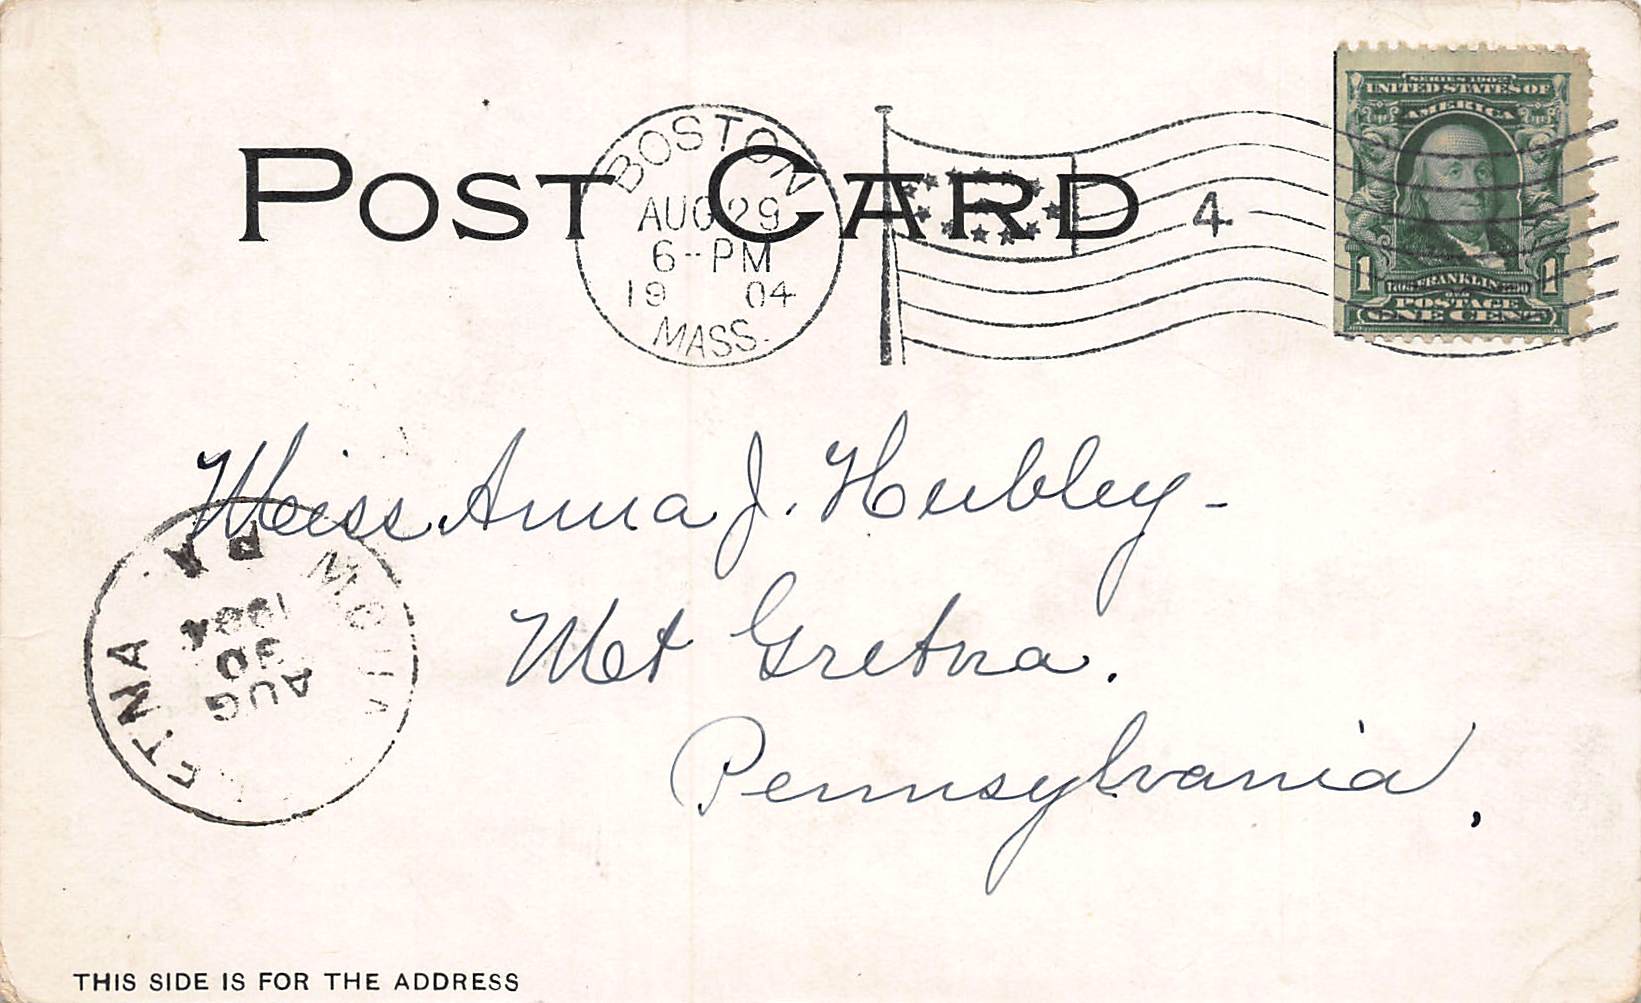 POST CARD
BOSTON
AUG 29
6--PM
19 04
MASS.
4
SERIES 1902
UNITED STATES OF
AMERICA
1 FRANKLIN 1
POSTAGE
ONE CENT
Miss Anna J. Hubley-
Mt Gretna.
Pennsylvania,
PA
1904
30
AUG
THIS SIDE IS FOR THE ADDRESS